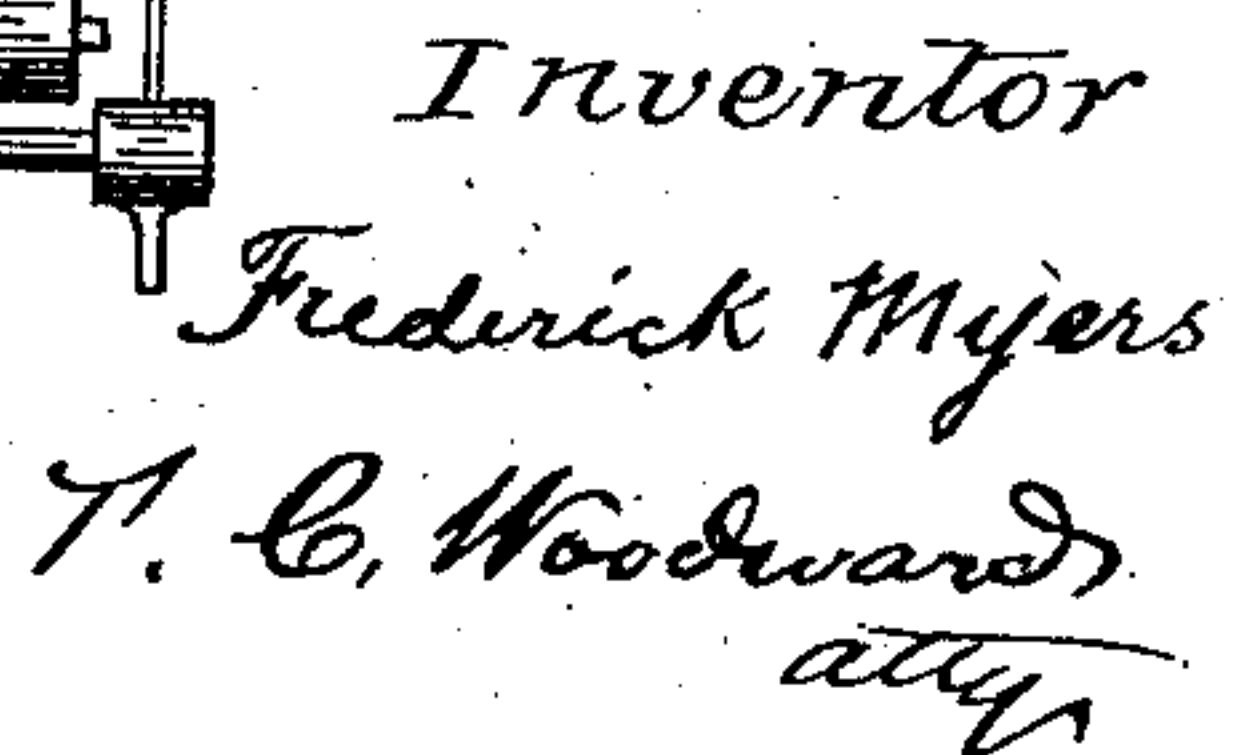 Inventor
Frederick Myers
T. C. Woodward
atty